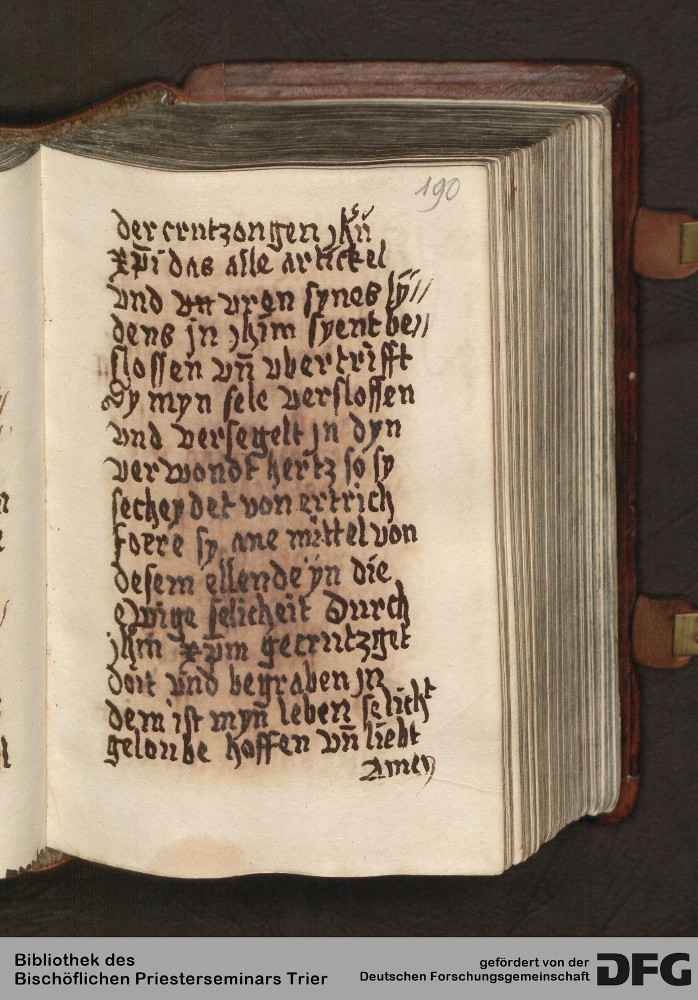 190
der crutzangen jhū
xp̄i das alle artickel
vnd vrọn synes ly̆//
dens jn jhm̄ syent be//
slossen vn̄ vbertrifft
Dy myn sele verslossen
vnd versegelt jn dyn
verwondt hertz so sy
secheydet von ertrich
foere sy ane mittel von
desem ellende ÿn die
ewige selicheit Durch
jhm̄ xp̄m gecrutzget
doit vnd begraben jn
dem ist myn̄ leben selicht
geloube hoffen vn̄ liebt
Amen
Bibliothek des
Bischöflichen Priesterseminars Trier
gefördert von der
Deutschen Forschungsgemeinschaft
DFG